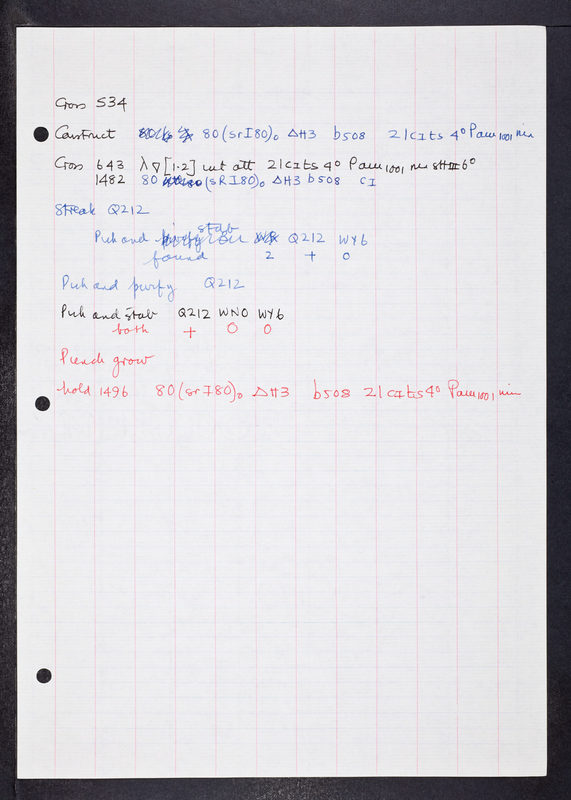 Cross 534
Construct 80 (srI80)₀ ΔH3 b508 21 cIts 4° Pam1001 nin
Cross 643 λ∇[1-2] cut att 21cIts 4° Pam1001 nin sHIII6°
1482 80 (sRI80)₀ ΔH3 b508 cI
Streak Q212
Pick and stab Q212 WY6
found 2 + 0
Pick and purify Q212
Pick and stab Q212 WNO WY6
both + 0 0
Pick and grow
hold 1496 80(srI80)₀ ΔH3 b508 21 cIts 4° Pam1001 nin